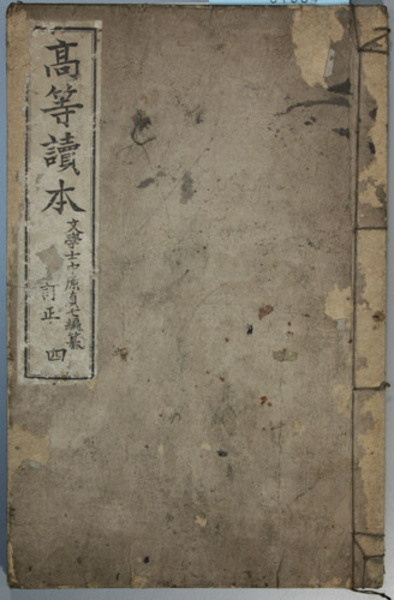 高等讀本
文學士中原貞七編纂
訂正 四